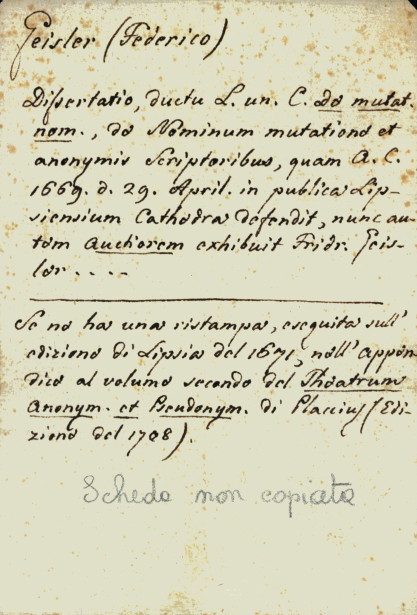 Geisler (Federico)
Dissertatio, ductu L. un. C. de mutat.
nom., de Nominum mutatione et
anonymis Scriptoribus, quam A. C.
1669. d. 29. April. in publica Lip-
siensium Cathedra defendit, nunc au-
tem auctiorem exhibuit Fridr. Geis-
ler . . . .
Se ne ha una ristampa, eseguita sull'
edizione di Lipsia del 1671, nell' appen-
dice al volume secondo del Theatrum
anonym. et Pseudonym. di Placcius (Edi-
zione del 1708).
Scheda non copiata